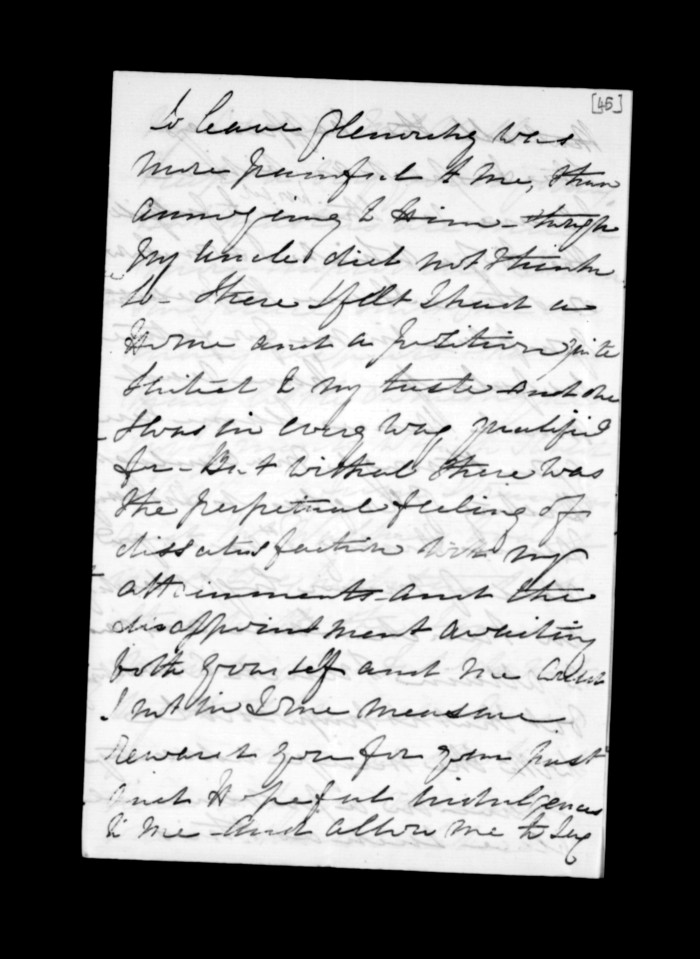 [45]
to leave Glenorchy was
more painful to me, than
annoying to Him - though
My Uncle did not think
so - there I felt I had a
Home and a position quite
suited to my taste and one
I was in every way gratified
for - But withal there was
the perpetual feeling of
dissatisfaction with my
attainments and the
disappointment awaiting
both yourself and me could
I not in some measure
reward you for your past
and Hopeful indulgences
to me - and allow me to say